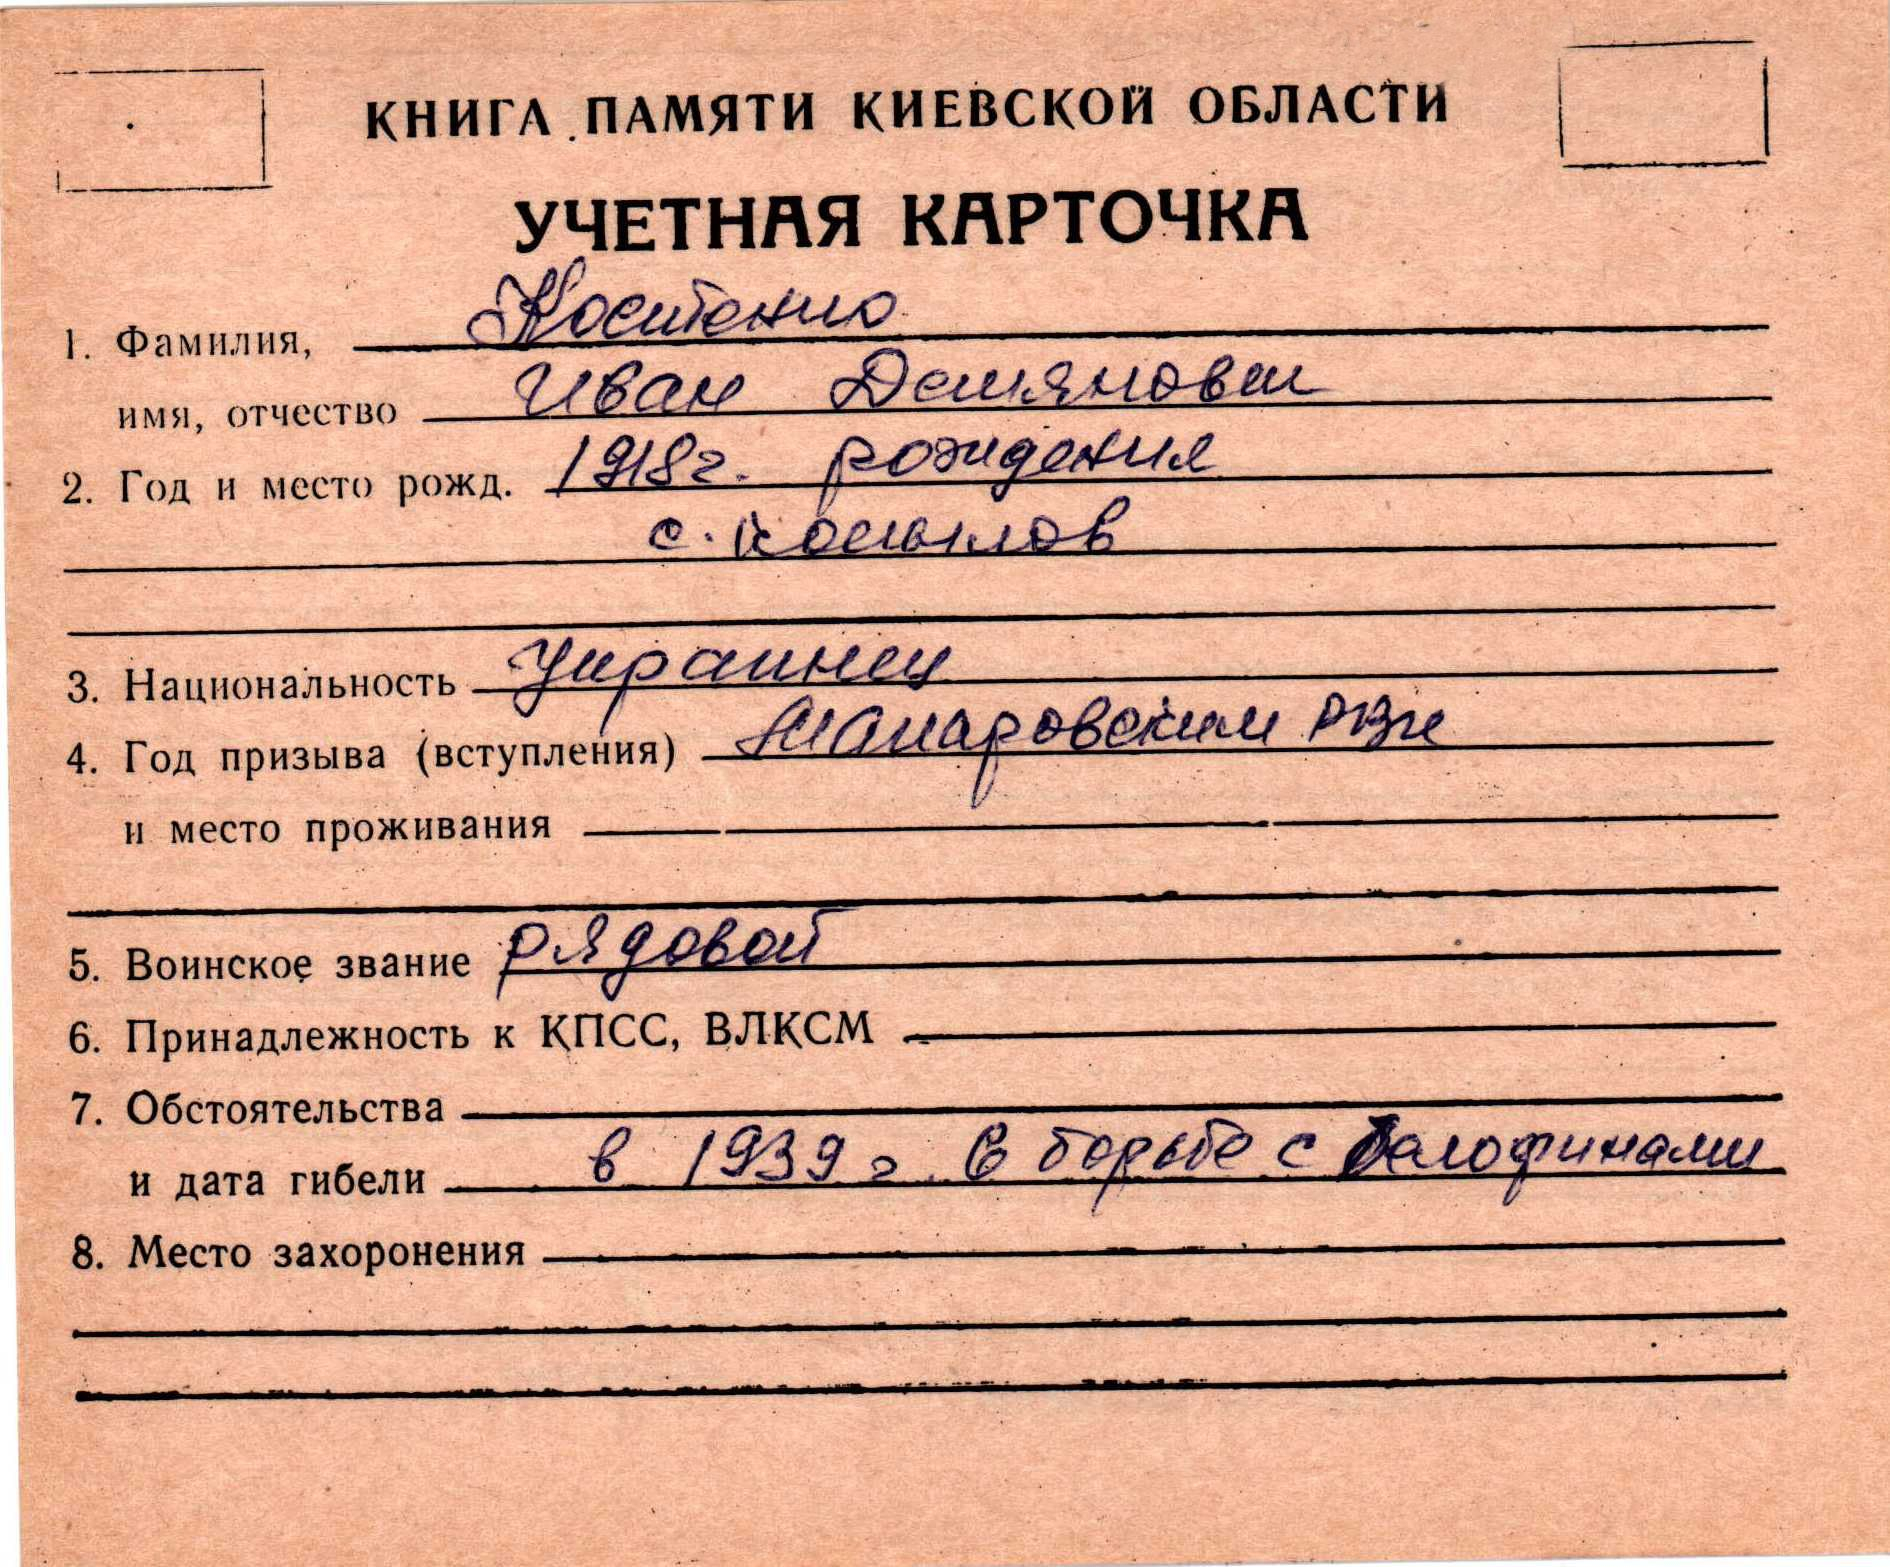 КНИГА ПАМЯТИ КИЕВСКОЙ ОБЛАСТИ
УЧЕТНАЯ КАРТОЧКА
1. Фамилия, Костенко
имя, отчество Иван Демянович
2. Год и место рожд. 1918г. рождения
с. Копылов
3. Национальность Украинец
4. Год призыва (вступления) Макаровским РВК
и место проживания
5. Воинское звание рядовой
6. Принадлежность к КПСС, ВЛКСМ
7. Обстоятельства
и дата гибели в 1939 г. В борьбе с белофинами
8. Место захоронения